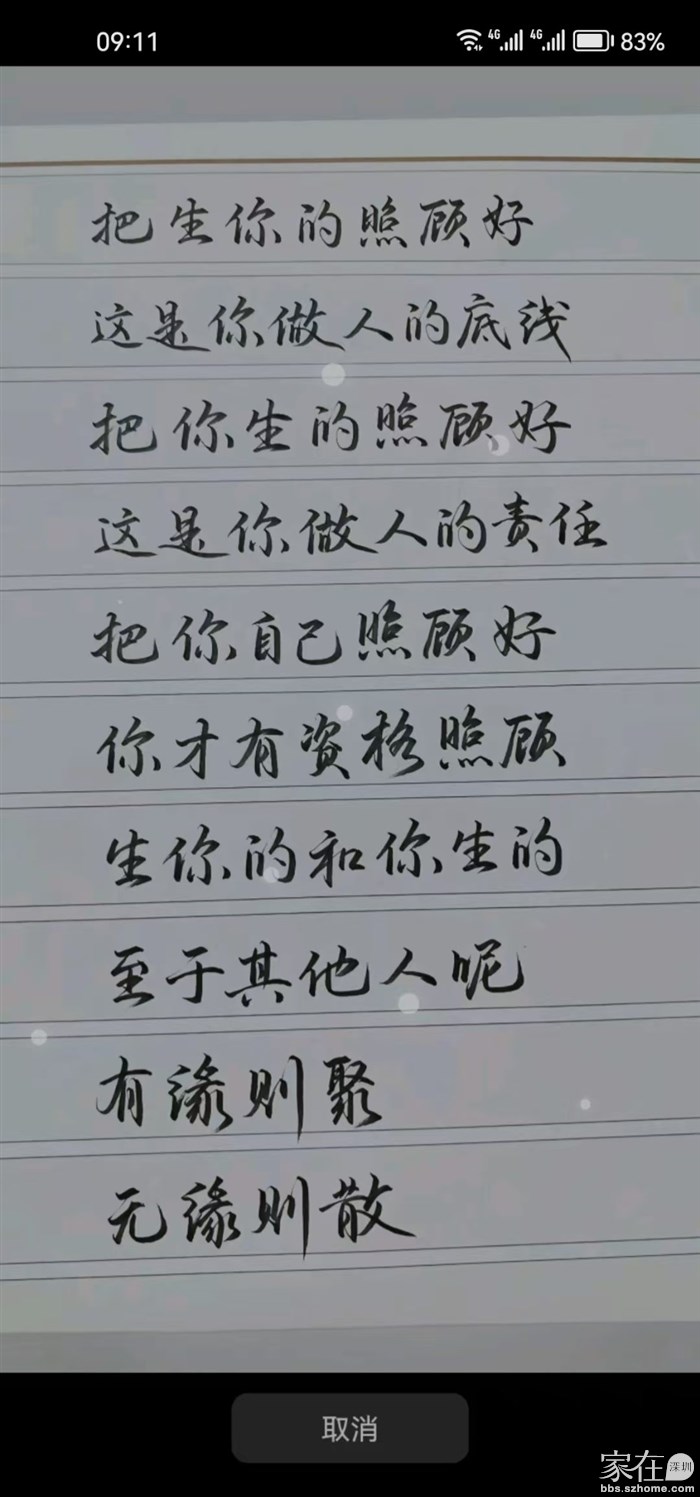 09:11 4G 4G 83%
把生你的照顾好
这是你做人的底线
把你生的照顾好
这是你做人的责任
把你自己照顾好
你才有资格照顾
生你的和你生的
至于其他人呢
有缘则聚
无缘则散
取消
家在深圳
bbs.szhome.com